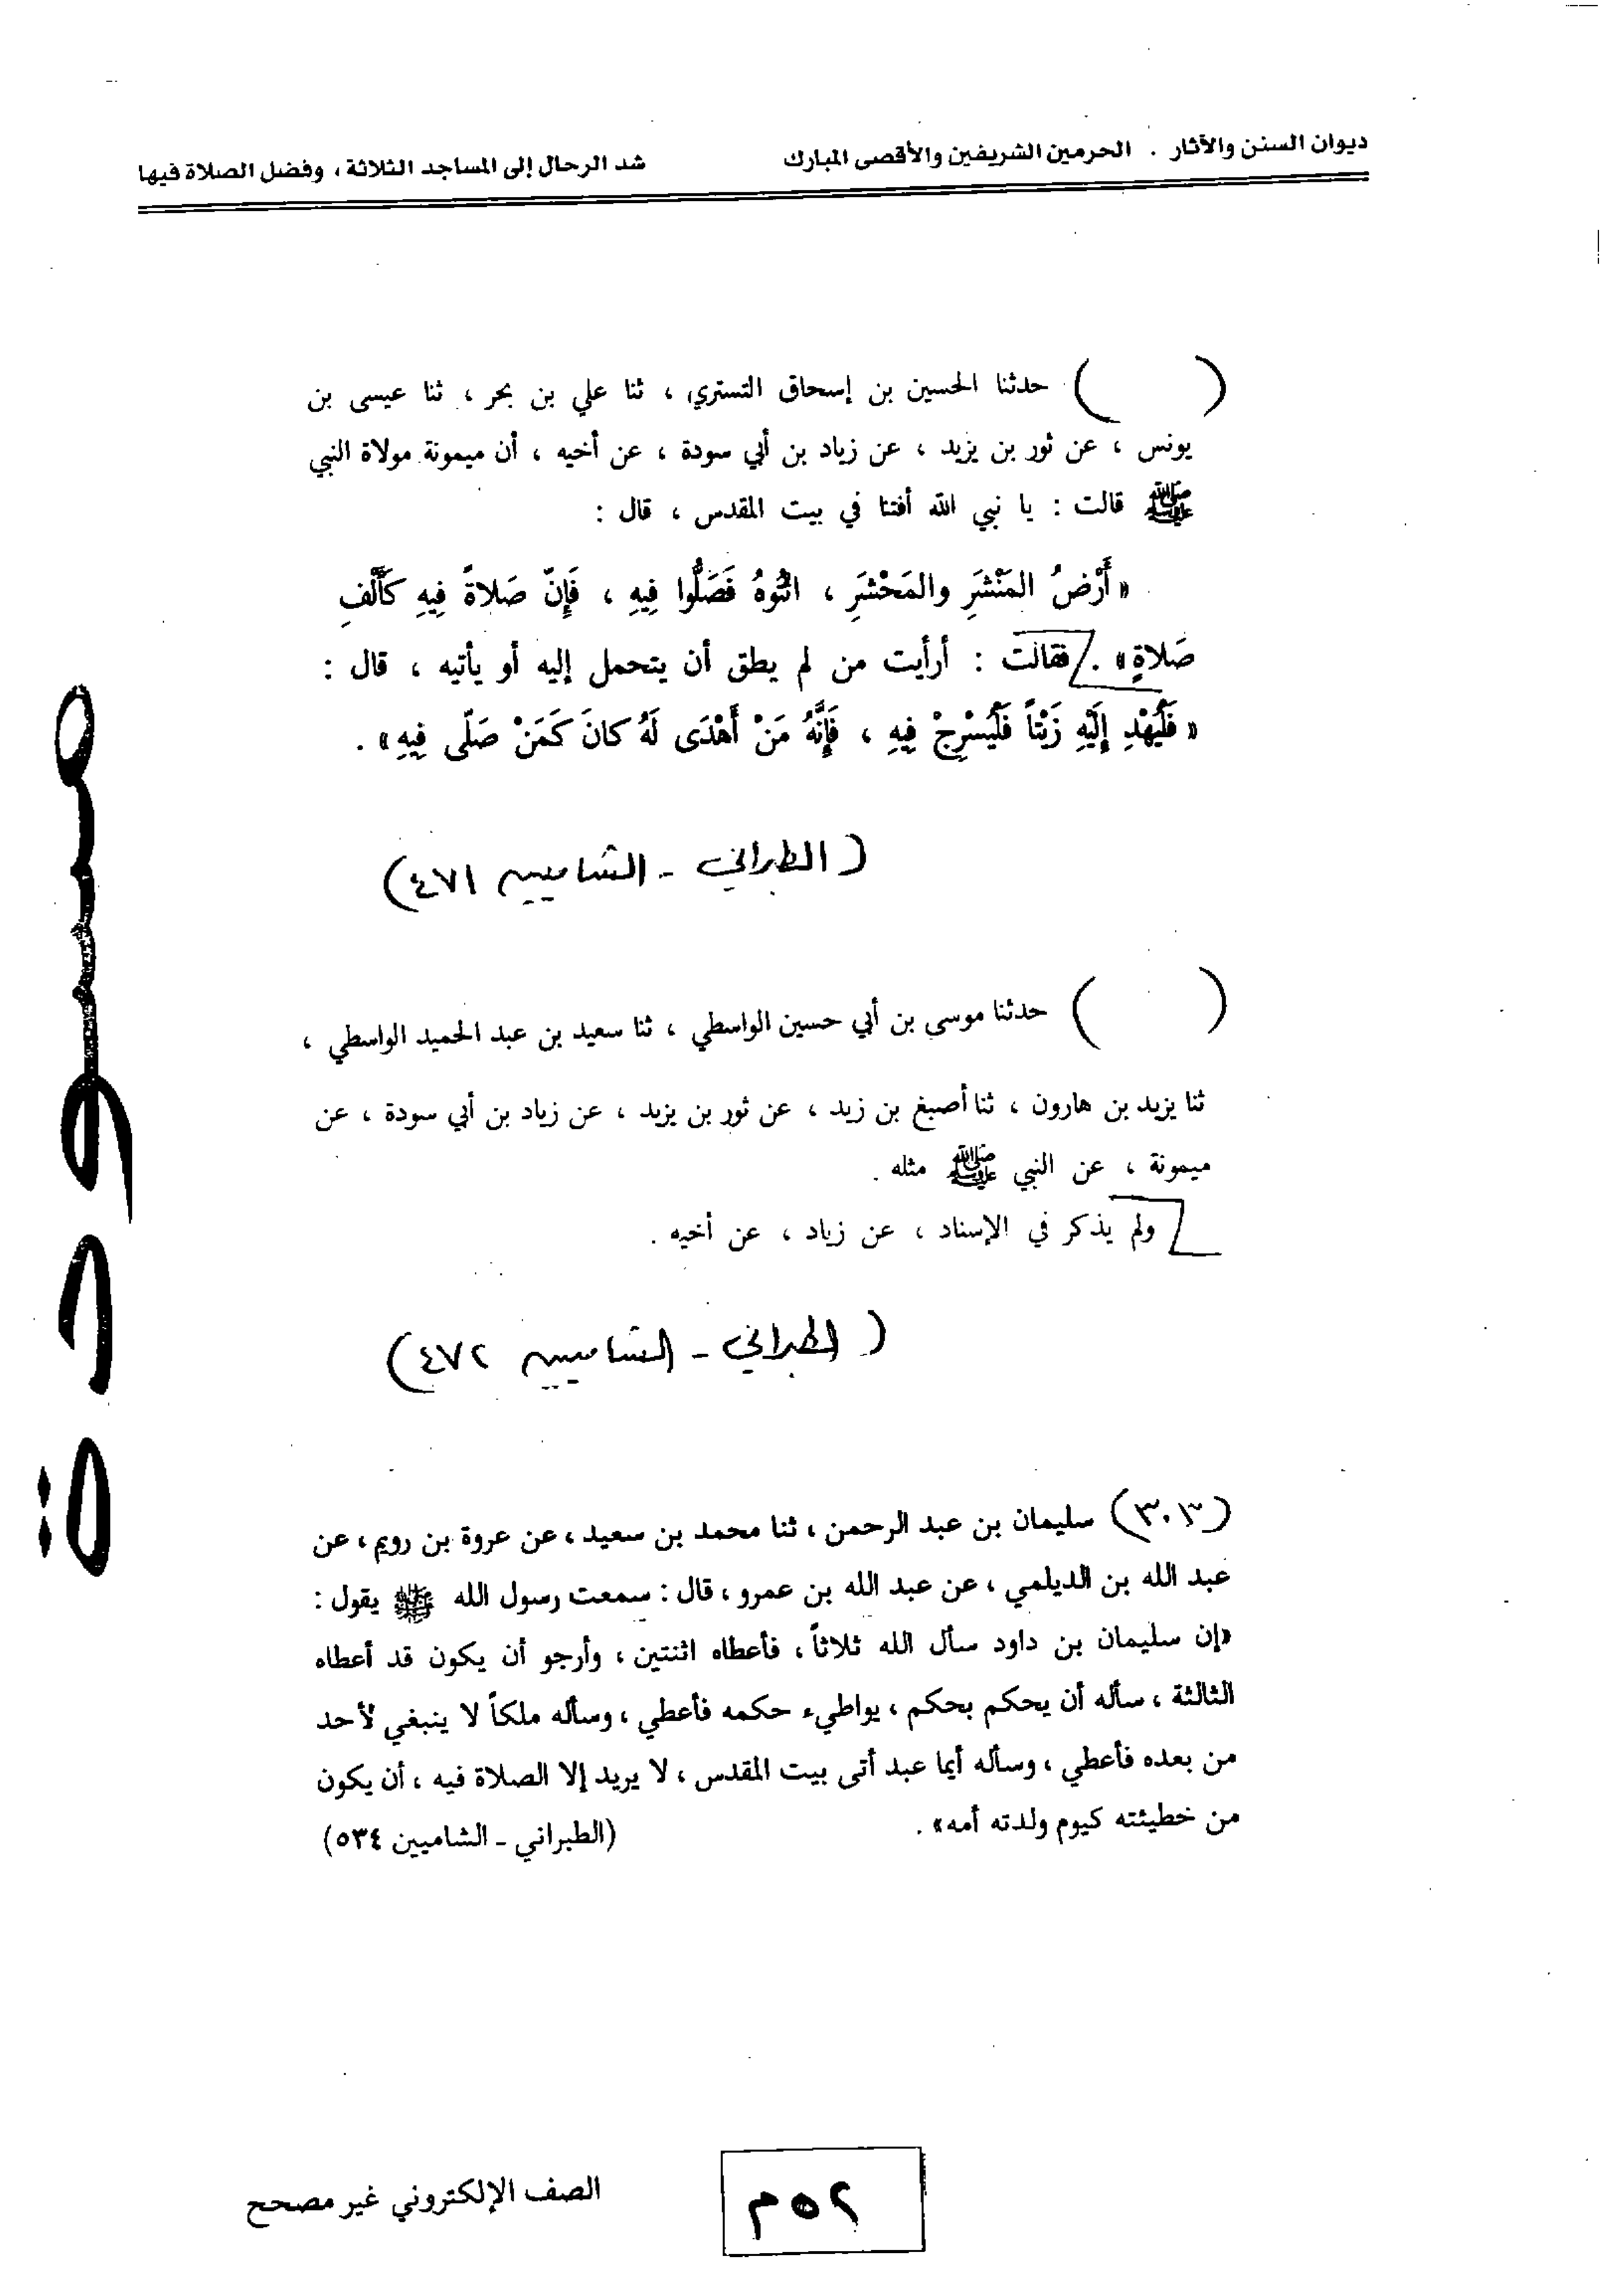 ديوان السنن والآثار . الحرمين الشريفين والأقصى المبارك شد الرحال إلى المساجد الثلاثة ، وفضل الصلاة فيها
( ) حدثنا الحسين بن إسحاق التستري ، ثنا علي بن بحر ، ثنا عيسى بن
يونس ، عن ثور بن يزيد ، عن زياد بن أبي سودة ، عن أخيه ، أن ميمونة مولاة النبي
ﷺ قالت : يا نبي الله أفتنا في بيت المقدس ، قال :
« أَرْضُ المَنْشَرِ والمَحْشَرِ ، ائْتُوهُ فَصَلُّوا فِيهِ ، فَإِنّ صَلاةً فِيهِ كَأَلْفِ
صَلاةٍ » . فقالت : أرأيت من لم يطق أن يتحمل إليه أو يأتيه ، قال :
« فَلْيُهْدِ إِلَيْهِ زَيْتاً فَلْيُسْرِجْ فِيهِ ، فَإِنَّهُ مَنْ أَهْدَى لَهُ كانَ كَمَنْ صَلّى فِيهِ » .
( الطبراني - الشاميين ٤٧١ )
( ) حدثنا موسى بن أبي حسين الواسطي ، ثنا سعيد بن عبد الحميد الواسطي ،
ثنا يزيد بن هارون ، ثنا أصبغ بن زيد ، عن ثور بن يزيد ، عن زياد بن أبي سودة ، عن
ميمونة ، عن النبي ﷺ مثله .
ولم يذكر في الإسناد ، عن زياد ، عن أخيه .
( الطبراني - الشاميين ٤٧٢ )
(٣٠١٣) سليمان بن عبد الرحمن ، ثنا محمد بن سعيد ، عن عروة بن رويم ، عن
عبد الله بن الديلمي ، عن عبد الله بن عمرو ، قال : سمعت رسول الله ﷺ يقول :
«إن سليمان بن داود سأل الله ثلاثاً ، فأعطاه اثنتين ، وأرجو أن يكون قد أعطاه
الثالثة ، سأله أن يحكم بحكم ، يواطيء حكمه فأعطي ، وسأله ملكاً لا ينبغي لأحد
من بعده فأعطي ، وسأله أيما عبد أتى بيت المقدس ، لا يريد إلا الصلاة فيه ، أن يكون
من خطيئته كيوم ولدته أمه» . (الطبراني - الشاميين ٥٣٤)
مسودة
٢٥٢م
الصف الإلكتروني غير مصحح